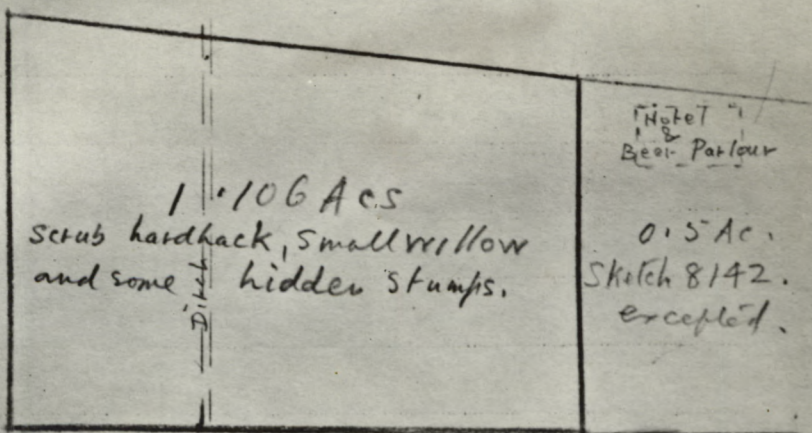 1.106 Acs
scrub hardhack, small willow
and some hidden stumps.
Ditch
Hotel
&
Beer Parlour
0.5 Ac.
Sketch 8142.
excepted.